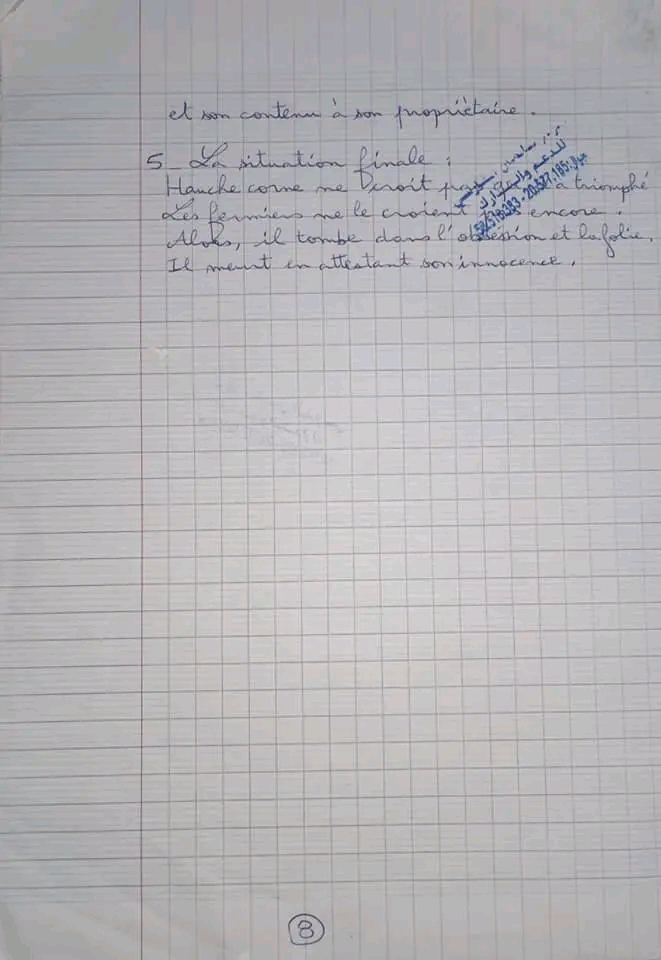 et son contenu à son propriétaire.
5_ La situation finale :
Hauche corne ne a triomphé
Les fermiers ne le croient pas encore.
Alors, il tombe dans l'obsession et la folie.
Il meurt en attestant son innocence.
للدعم والتدارك
8